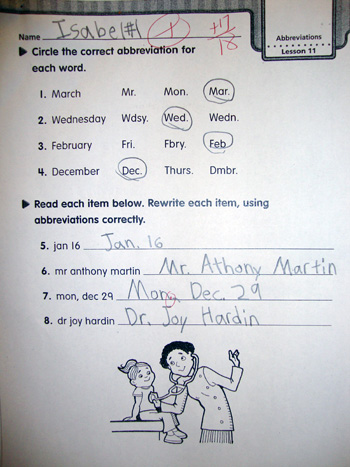 Name Isabel #1 + +17
18
Abbreviations
Lesson 11
▶ Circle the correct abbreviation for
each word.
1. March Mr. Mon. Mar.
2. Wednesday Wdsy. Wed. Wedn.
3. February Fri. Fbry. Feb.
4. December Dec. Thurs. Dmbr.
▶ Read each item below. Rewrite each item, using
abbreviations correctly.
5. jan 16 Jan. 16
6. mr anthony martin Mr. Athony Martin
7. mon, dec 29 Mon., Dec. 29
8. dr joy hardin Dr. Joy Hardin